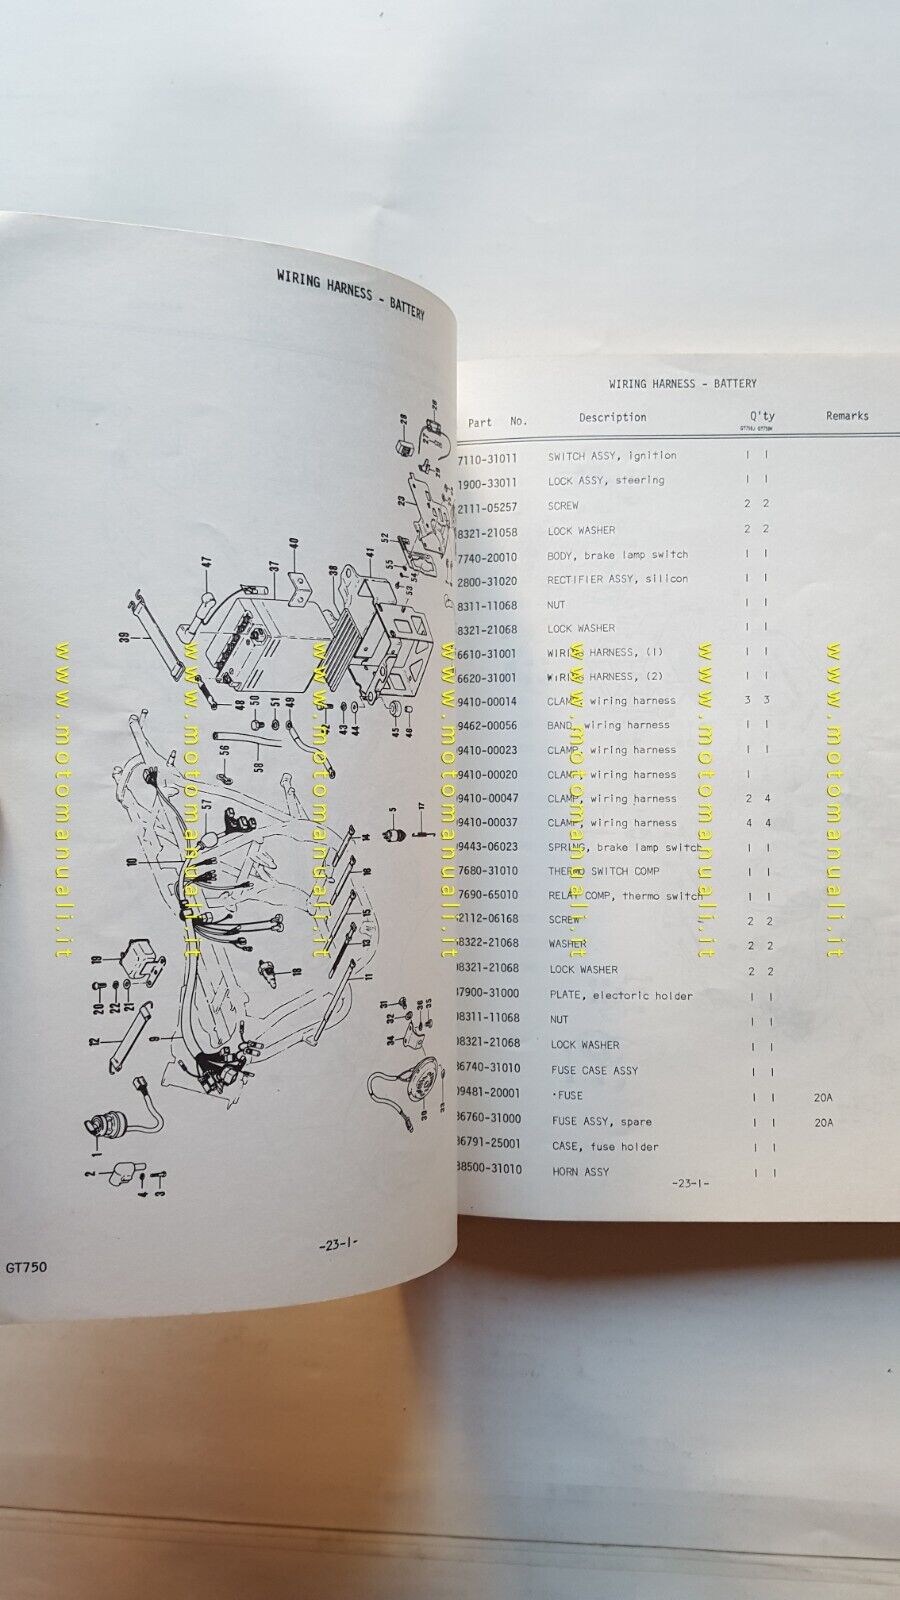 WIRING HARNESS - BATTERY
28
26
27
29
23
52
55
54
53
47
40
37
38
41
39
48
50
51
49
43
44
45
46
56
58
57
10
5
17
14
16
15
13
11
19
20
22
21
18
12
9
31
32
36
35
34
30
33
1
2
4
3
-23-1-
GT750
WIRING HARNESS - BATTERY
Part No. Description Q'ty Remarks
7110-31011 SWITCH ASSY, ignition 1 1
1900-33011 LOCK ASSY, steering 1 1
2111-05257 SCREW 2 2
8321-21058 LOCK WASHER 2 2
7740-20010 BODY, brake lamp switch 1 1
2800-31020 RECTIFIER ASSY, silicon 1 1
8311-11068 NUT 1 1
8321-21068 LOCK WASHER 1 1
6610-31001 WIRING HARNESS, (1) 1 1
6620-31001 WIRING HARNESS, (2) 1 1
9410-00014 CLAMP, wiring harness 3 3
9462-00056 BAND, wiring harness 1 1
9410-00023 CLAMP, wiring harness 1 1
9410-00020 CLAMP, wiring harness 1
9410-00047 CLAMP, wiring harness 2 4
9410-00037 CLAMP, wiring harness 4 4
9443-06023 SPRING, brake lamp switch 1 1
7680-31010 THERMO SWITCH COMP 1 1
7690-65010 RELAY COMP, thermo switch 1 1
2112-06168 SCREW 2 2
8322-21068 WASHER 2 2
08321-21068 LOCK WASHER 2 2
37900-31000 PLATE, electoric holder 1 1
08311-11068 NUT 1 1
08321-21068 LOCK WASHER 1 1
36740-31010 FUSE CASE ASSY 1 1
09481-20001 ·FUSE 1 1 20A
36760-31000 FUSE ASSY, spare 1 1 20A
36791-25001 CASE, fuse holder 1 1
38500-31010 HORN ASSY 1 1
-23-1-
www.motomanuali.it
www.motomanuali.it
www.motomanuali.it
www.motomanuali.it
www.motomanuali.it
www.motomanuali.it
www.motomanuali.it